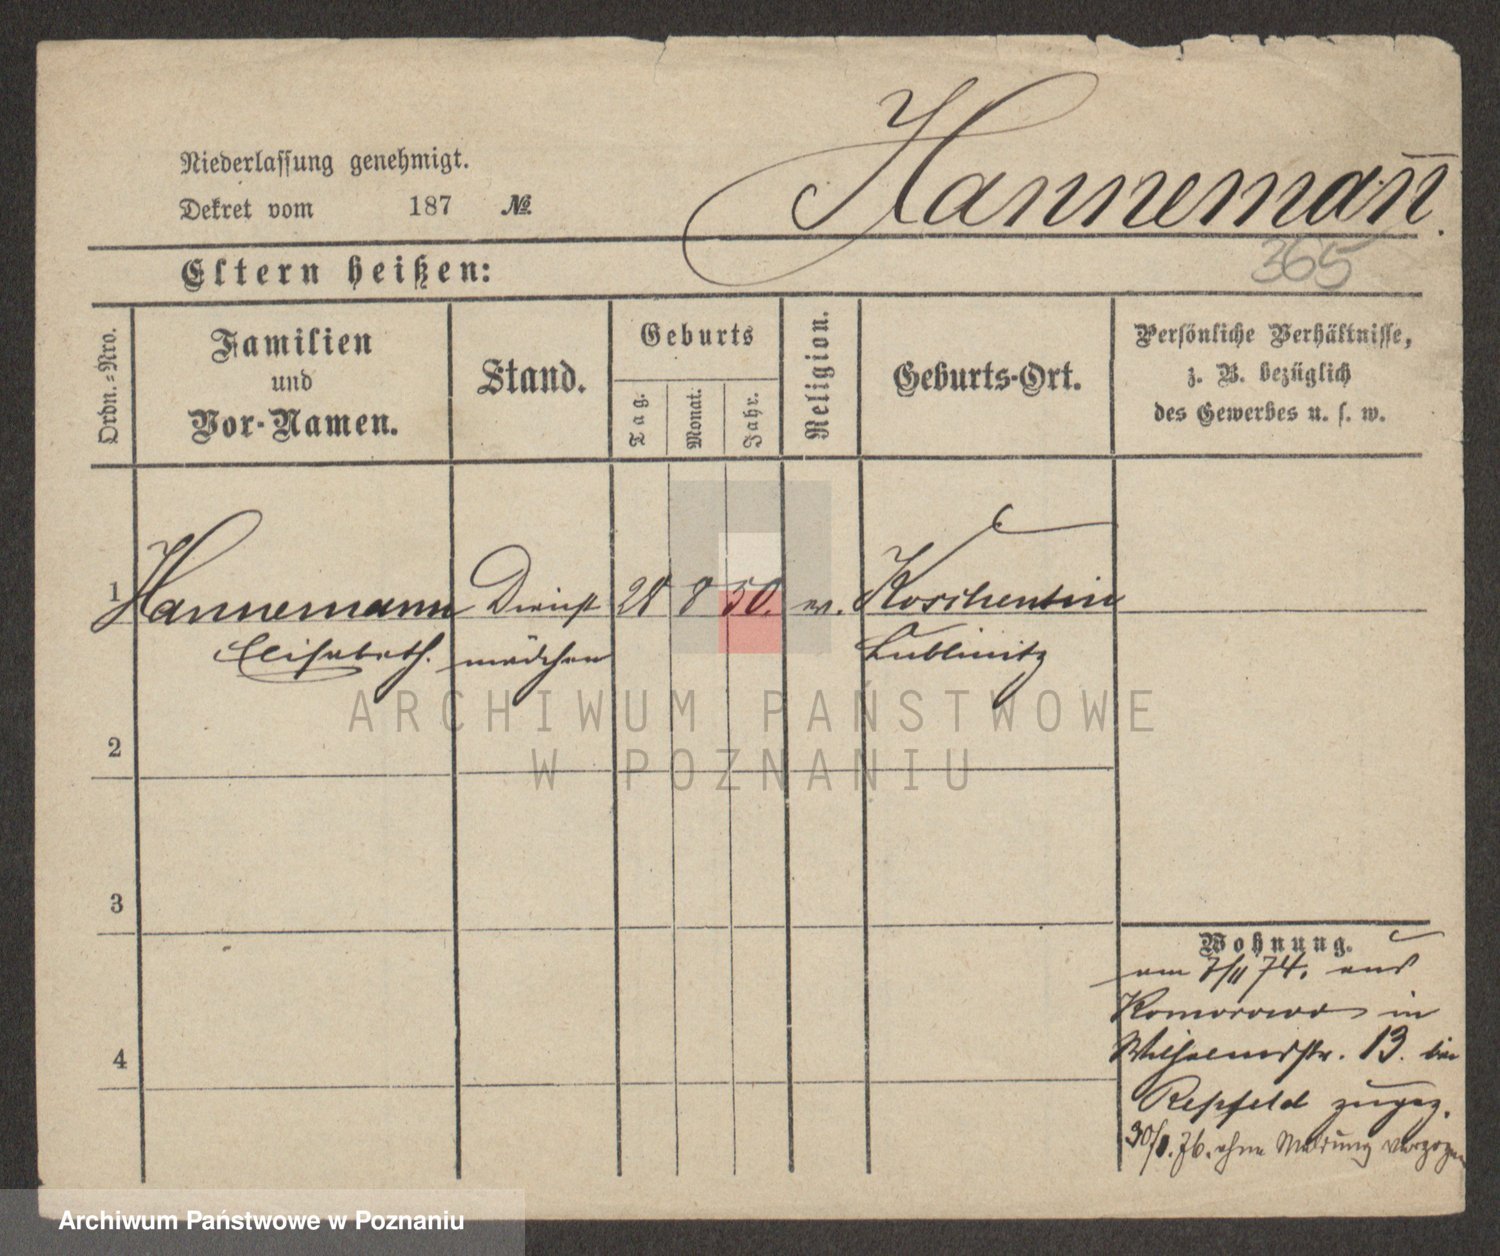 Hannemañ.
Niederlassung genehmigt.
Dekret vom 187 №
365
Eltern heißen:
Ordn.-Nro.
Familien
und
Vor-Namen.
Stand.
Geburts
Tag.
Monat.
Jahr.
Religion.
Geburts-Ort.
Persönliche Verhältnisse,
z. B. bezüglich
des Gewerbes u. s. w.
1 Hannemann Dienst 28 8 50. ev. Koschentin
Elisabeth. mädchen Lublinitz
ARCHIWUM PAŃSTWOWE
W POZNANIU
2
3
4
Wohnung.
am 7/11 74. aus
Komorowo in
Wilhelmstr. 13. bei
zugez.
30/8. 76. ohne Meldung verzogen
Archiwum Państwowe w Poznaniu